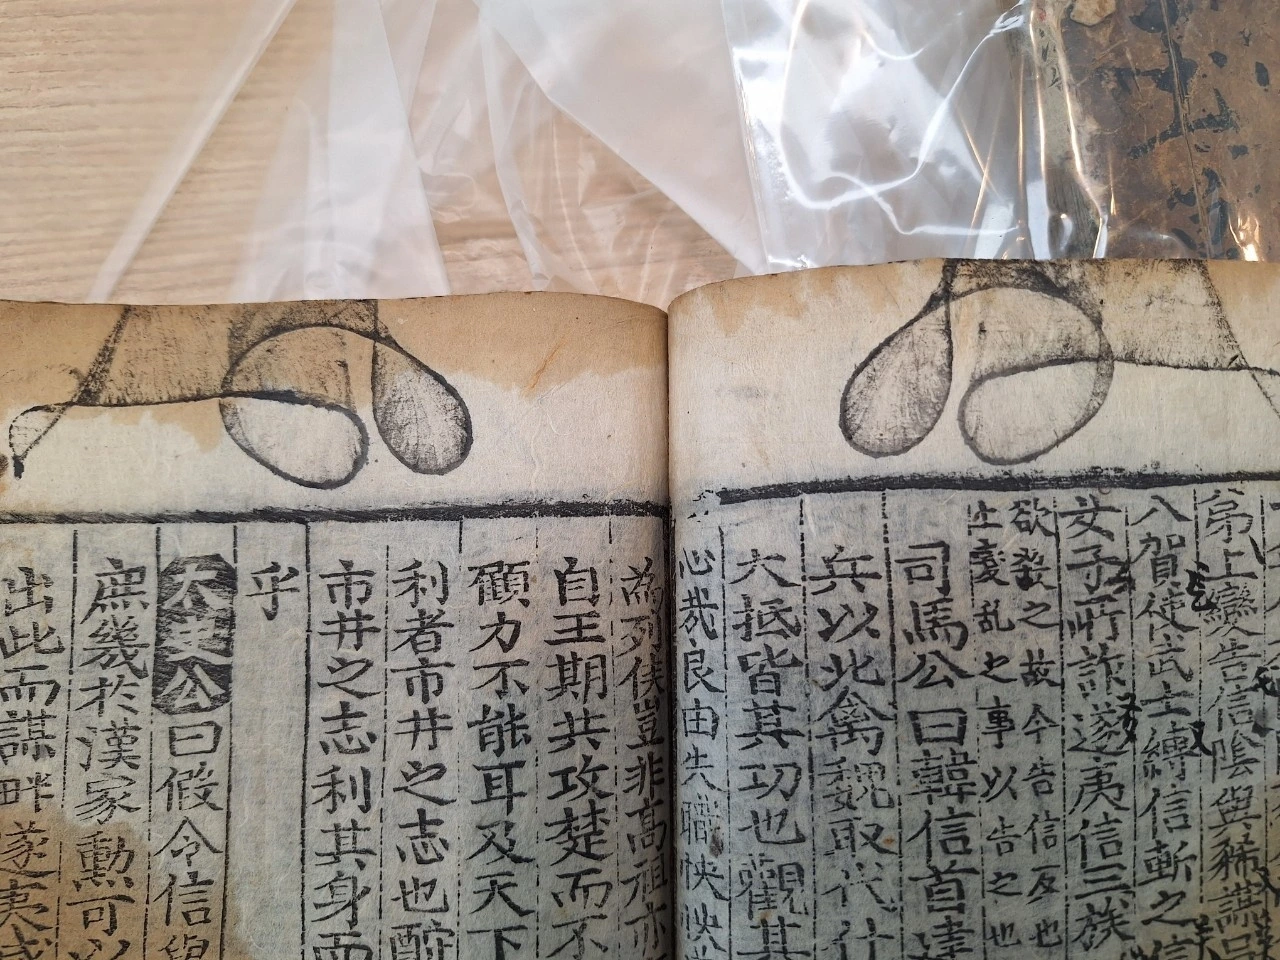 弟上變告信陰與豨謀
八賀使武士縛信斬之
女子所詐遂夷信三族
欲發之故今告信反也
上變乱之事以告之也
司馬公曰韓信首建
兵以北禽魏取代仆
大抵皆其功也觀其
心哉良由失職怏怏
為列侯豈非高祖亦
自王期共攻楚而不
顧力不能耳及天下
利者市井之志也酧
市井之志利其身而
乎
太史公曰假令信
庶幾於漢家勳可以
出此而謀畔遂夷